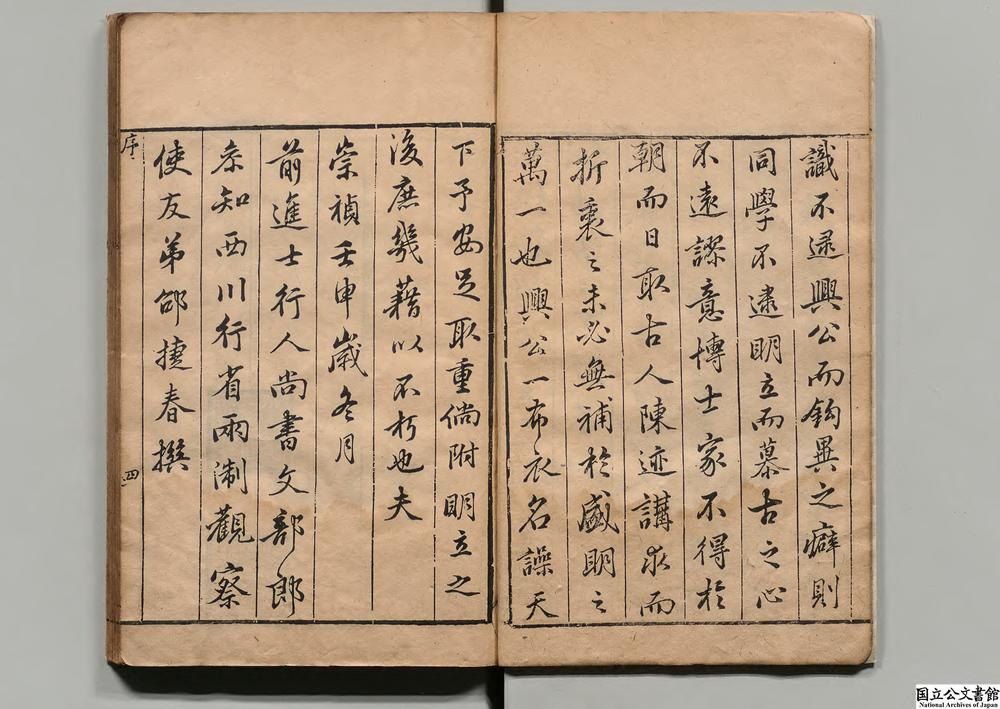 識不逮興公而鈎異之癖則
同學不逮明立而慕古之心
不遠謬意博士家不得於
朝而日取古人陳迹講求而
折衷之未必無補於盛明之
萬一也興公一布衣名譟天
下予安足取重倘附明立之
後庶幾藉以不朽也夫
崇禎壬申歲冬月
前進士行人尚書文部郎
叅知西川行省兩制觀察
使友弟邵捷春撰
序
四
国立公文書館
National Archives of Japan